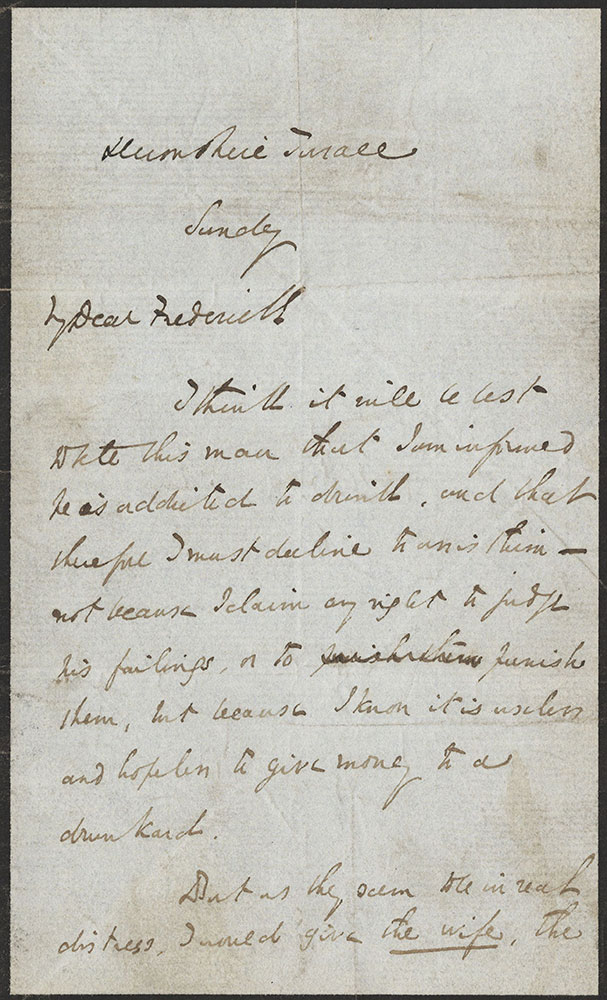 Devonshire Terrace
Sunday
My Dear Frederick
I think it will be best
to tell this man that I am informed
he is addicted to drink, and that
therefore I must decline to assist him —
not because I claim any right to judge
his failings, or to punish them punish
them, but because I know it is useless
and hopeless to give money to a
drunkard.
But as they seem to be in real
distress, I would give the wife, the